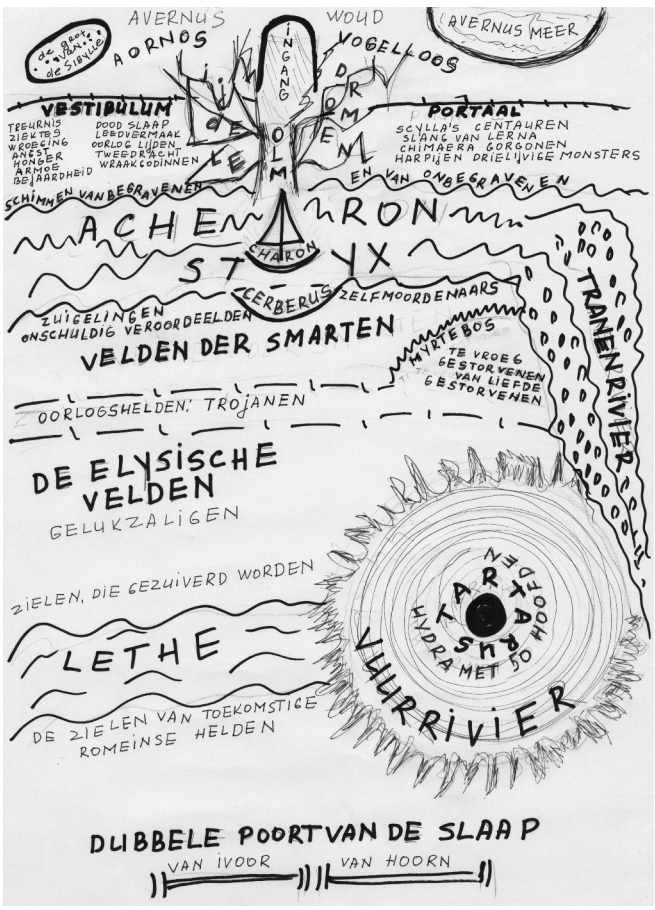 AVERNUS WOUD
AVERNUS MEER
de grot
van
de SIBYLLE
AORNOS
VOGELLOOS
INGANG
IJDELE
DROMEN
OLM
VESTIBULUM
TREURNIS
ZIEKTES
WROEGING
ANGST
HONGER
ARMOE
BEJAARDHEID
DOOD SLAAP
LEEDVERMAAK
OORLOG LIJDEN
TWEEDRACHT
WRAAKGODINNEN
PORTAAL
SCYLLA'S CENTAUREN
SLANG VAN LERNA
CHIMAERA GORGONEN
HARPIJEN DRIELIJVIGE MONSTERS
SCHIMMEN VAN BEGRAVENEN
EN VAN ONBEGRAVENEN
ACHERON
CHARON
STYX
CERBERUS
TRANENRIVIER
ZUIGELINGEN
ONSCHULDIG VEROORDEELDEN
ZELFMOORDENAARS
VELDEN DER SMARTEN
MYRTEBOS
TE VROEG
GESTORVENEN
VAN LIEFDE
GESTORVENEN
OORLOGSHELDEN: TROJANEN
DE ELYSISCHE
VELDEN
GELUKZALIGEN
ZIELEN, DIE GEZUIVERD WORDEN
LETHE
DE ZIELEN VAN TOEKOMSTIGE
ROMEINSE HELDEN
TARTARUS
HYDRA MET 50 HOOFDEN
VUURRIVIER
DUBBELE POORT VAN DE SLAAP
VAN IVOOR
VAN HOORN